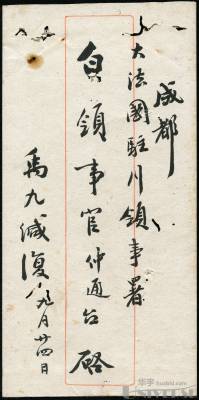 成都
大法國駐川領事署
白領事官仲通台啓
禹九緘復 九月廿四日